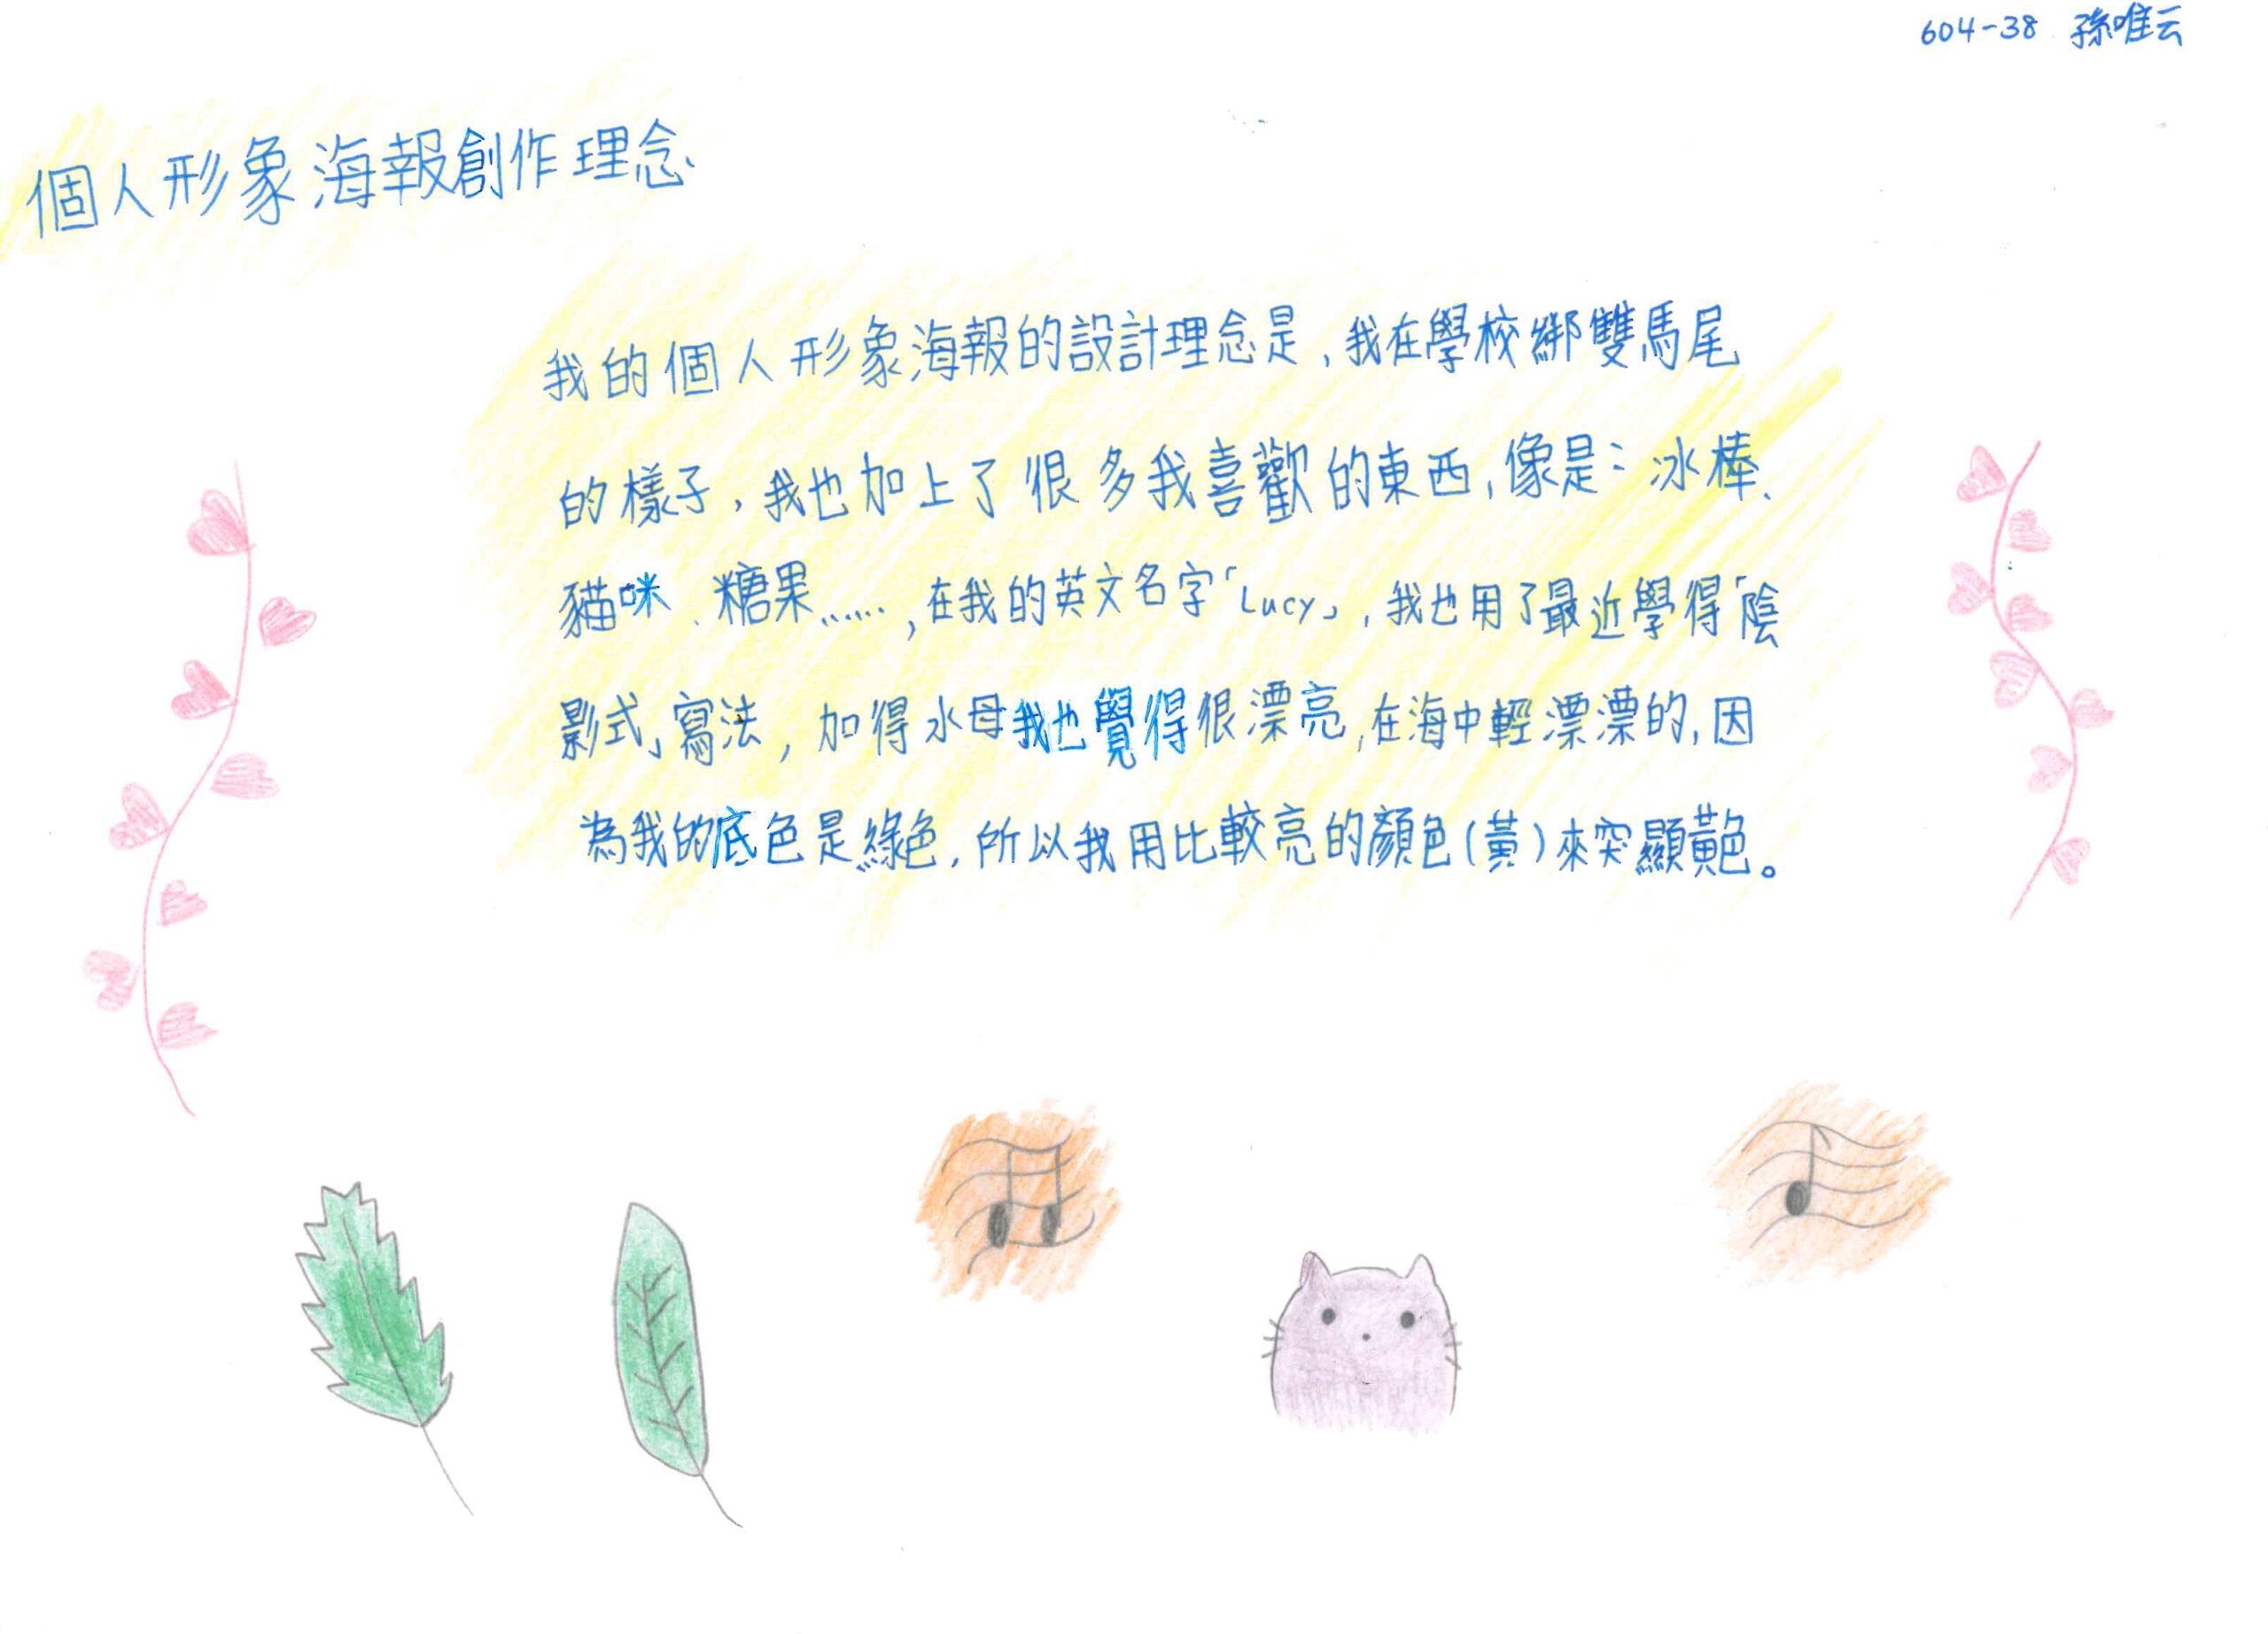 604-38 孫唯云
個人形象海報創作理念
我的個人形象海報的設計理念是，我在學校綁雙馬尾
的樣子，我也加上了很多我喜歡的東西，像是：冰棒、
貓咪、糖果……，在我的英文名字「Lucy」，我也用了最近學得「陰
影式」寫法，加得水母我也覺得很漂亮，在海中輕漂漂的，因
為我的底色是綠色，所以我用比較亮的顏色(黃)來突顯黃色。